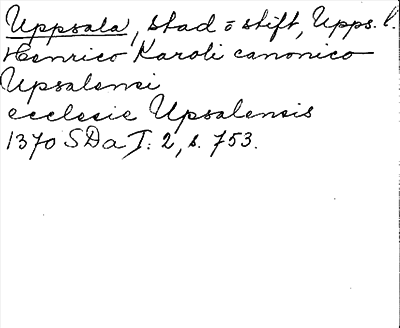 Uppsala, stad o stift, Upps. l.
Henrico Karoli canonico
Upsalensi
ecclesie Upsalensis
1370 SDa I: 2, s. 753.